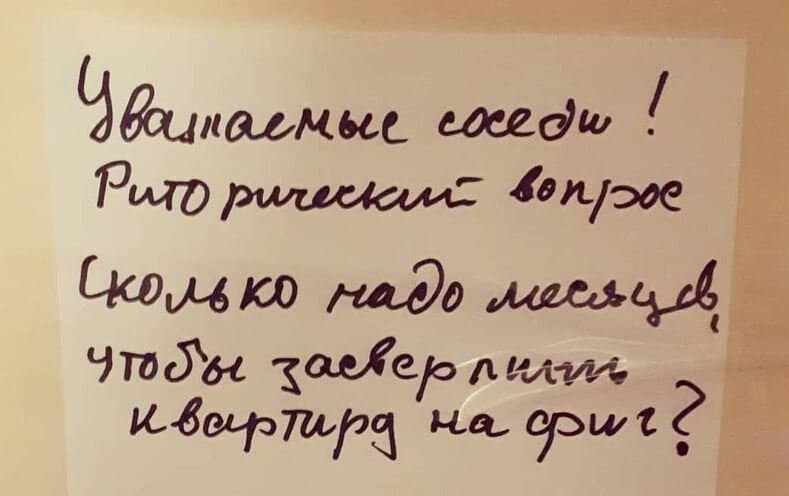 Уважаемые соседи!
Риторический вопрос
Сколько надо месяцев,
чтобы засверлить
квартиру на фиг?